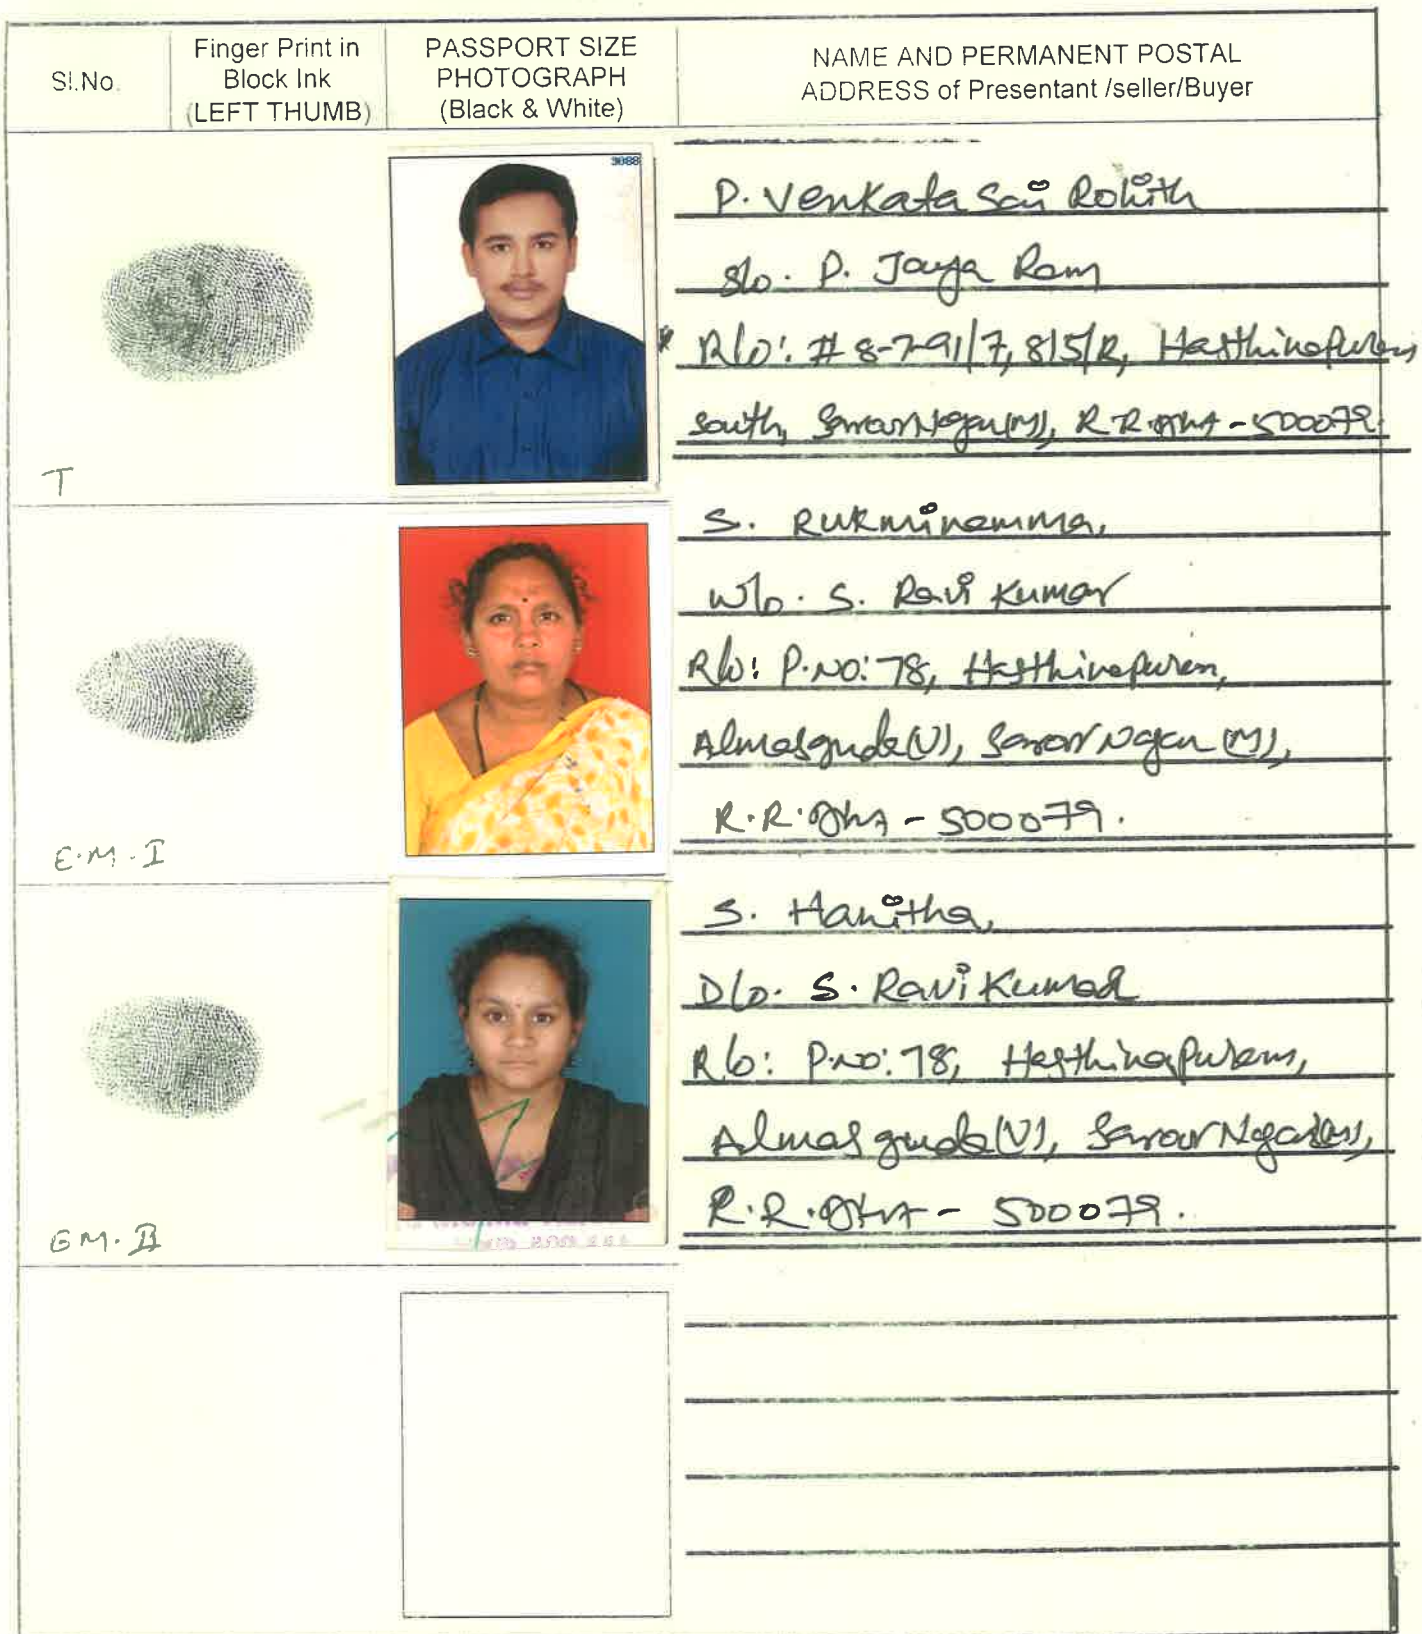 Sl.No.
Finger Print in
Block Ink
(LEFT THUMB)
PASSPORT SIZE
PHOTOGRAPH
(Black & White)
NAME AND PERMANENT POSTAL
ADDRESS of Presentant /seller/Buyer
3088
P. Venkata Sai Rohith
S/o. P. Jaya Ram
R/o: # 8-7-91/7, 815/R, Hasthinapuram
South, Saroor Nagar(M), R.R. - 500079.
T
S. Rukminamma,
W/o. S. Ravi Kumar
R/o: P.No: 78, Hasthinapuram,
Almasguda(V), Saroor Nagar (M),
R.R. - 500079.
E.M. I
S. Hanitha,
D/o. S. Ravi Kumar
R/o: P.No: 78, Hasthinapuram,
Almasguda(V), Saroor Nagar(M),
R.R. - 500079.
E M. II